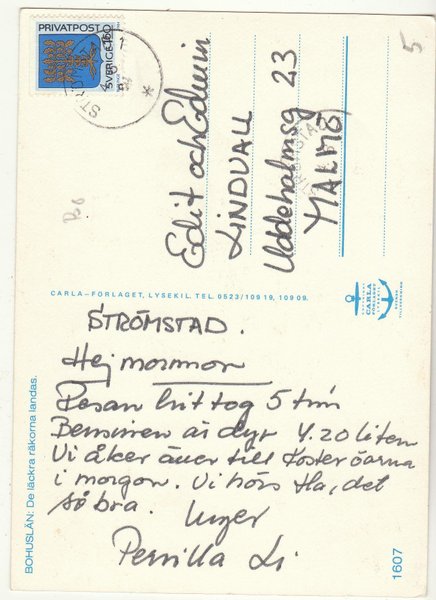 PRIVATPOST
SVERIGE 1.60
5
Edit och Edwin
LINDVALL
Uddeholmsg 23
MALMÖ
STRÖMSTAD
CARLA-FÖRLAGET, LYSEKIL. TEL. 0523/109 19, 109 09.
CARLA
FÖRLAGET
STRÖMSTAD.
Hej mormor
Resan hit tog 5 tim
Bensinen är dyr 4.20 liten
Vi åker över till Kosteröarna
i morgon. Vi hörs Ha det
så bra.
Pernilla
BOHUSLÄN: De läckra räkorna landas.
1607